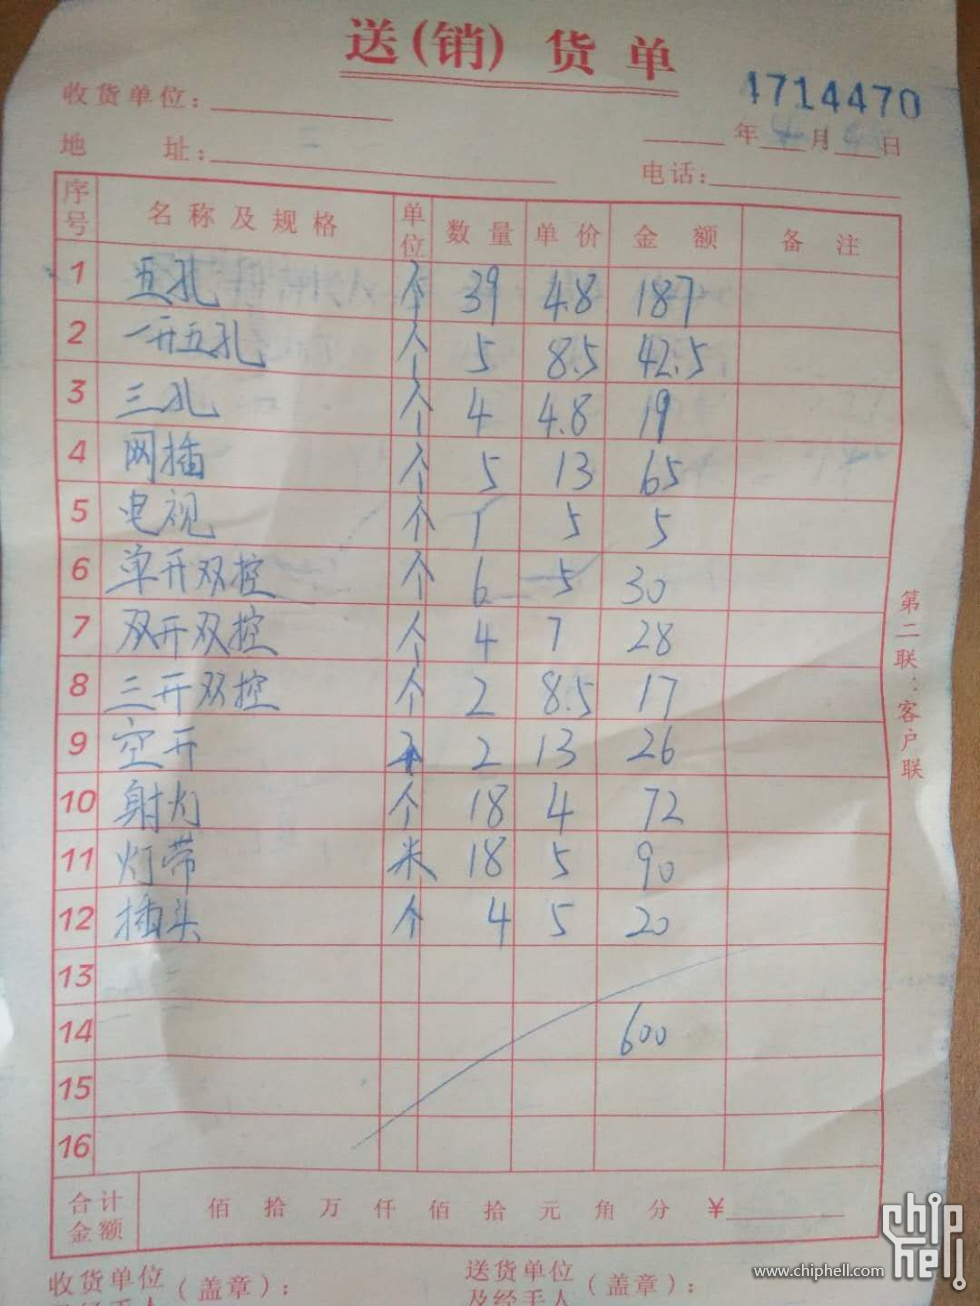 送(销)货单
4714470
收货单位:
年4月 日
地 址:
电话:
序号 名称及规格 单位 数量 单价 金额 备注
1 五孔 个 39 4.8 187
2 一开五孔 个 5 8.5 42.5
3 三孔 个 4 4.8 19
4 网插 个 5 13 65
5 电视 个 1 5 5
6 单开双控 个 6 5 30
7 双开双控 个 4 7 28
8 三开双控 个 2 8.5 17
9 空开 个 2 13 26
10 射灯 个 18 4 72
11 灯带 米 18 5 90
12 插头 个 4 5 20
13
14 600
15
16
合计金额 佰拾万仟佰拾元角分 ¥
收货单位(盖章):
及经手人
送货单位(盖章):
及经手人
第二联:客户联
chip hell
www.chiphell.com